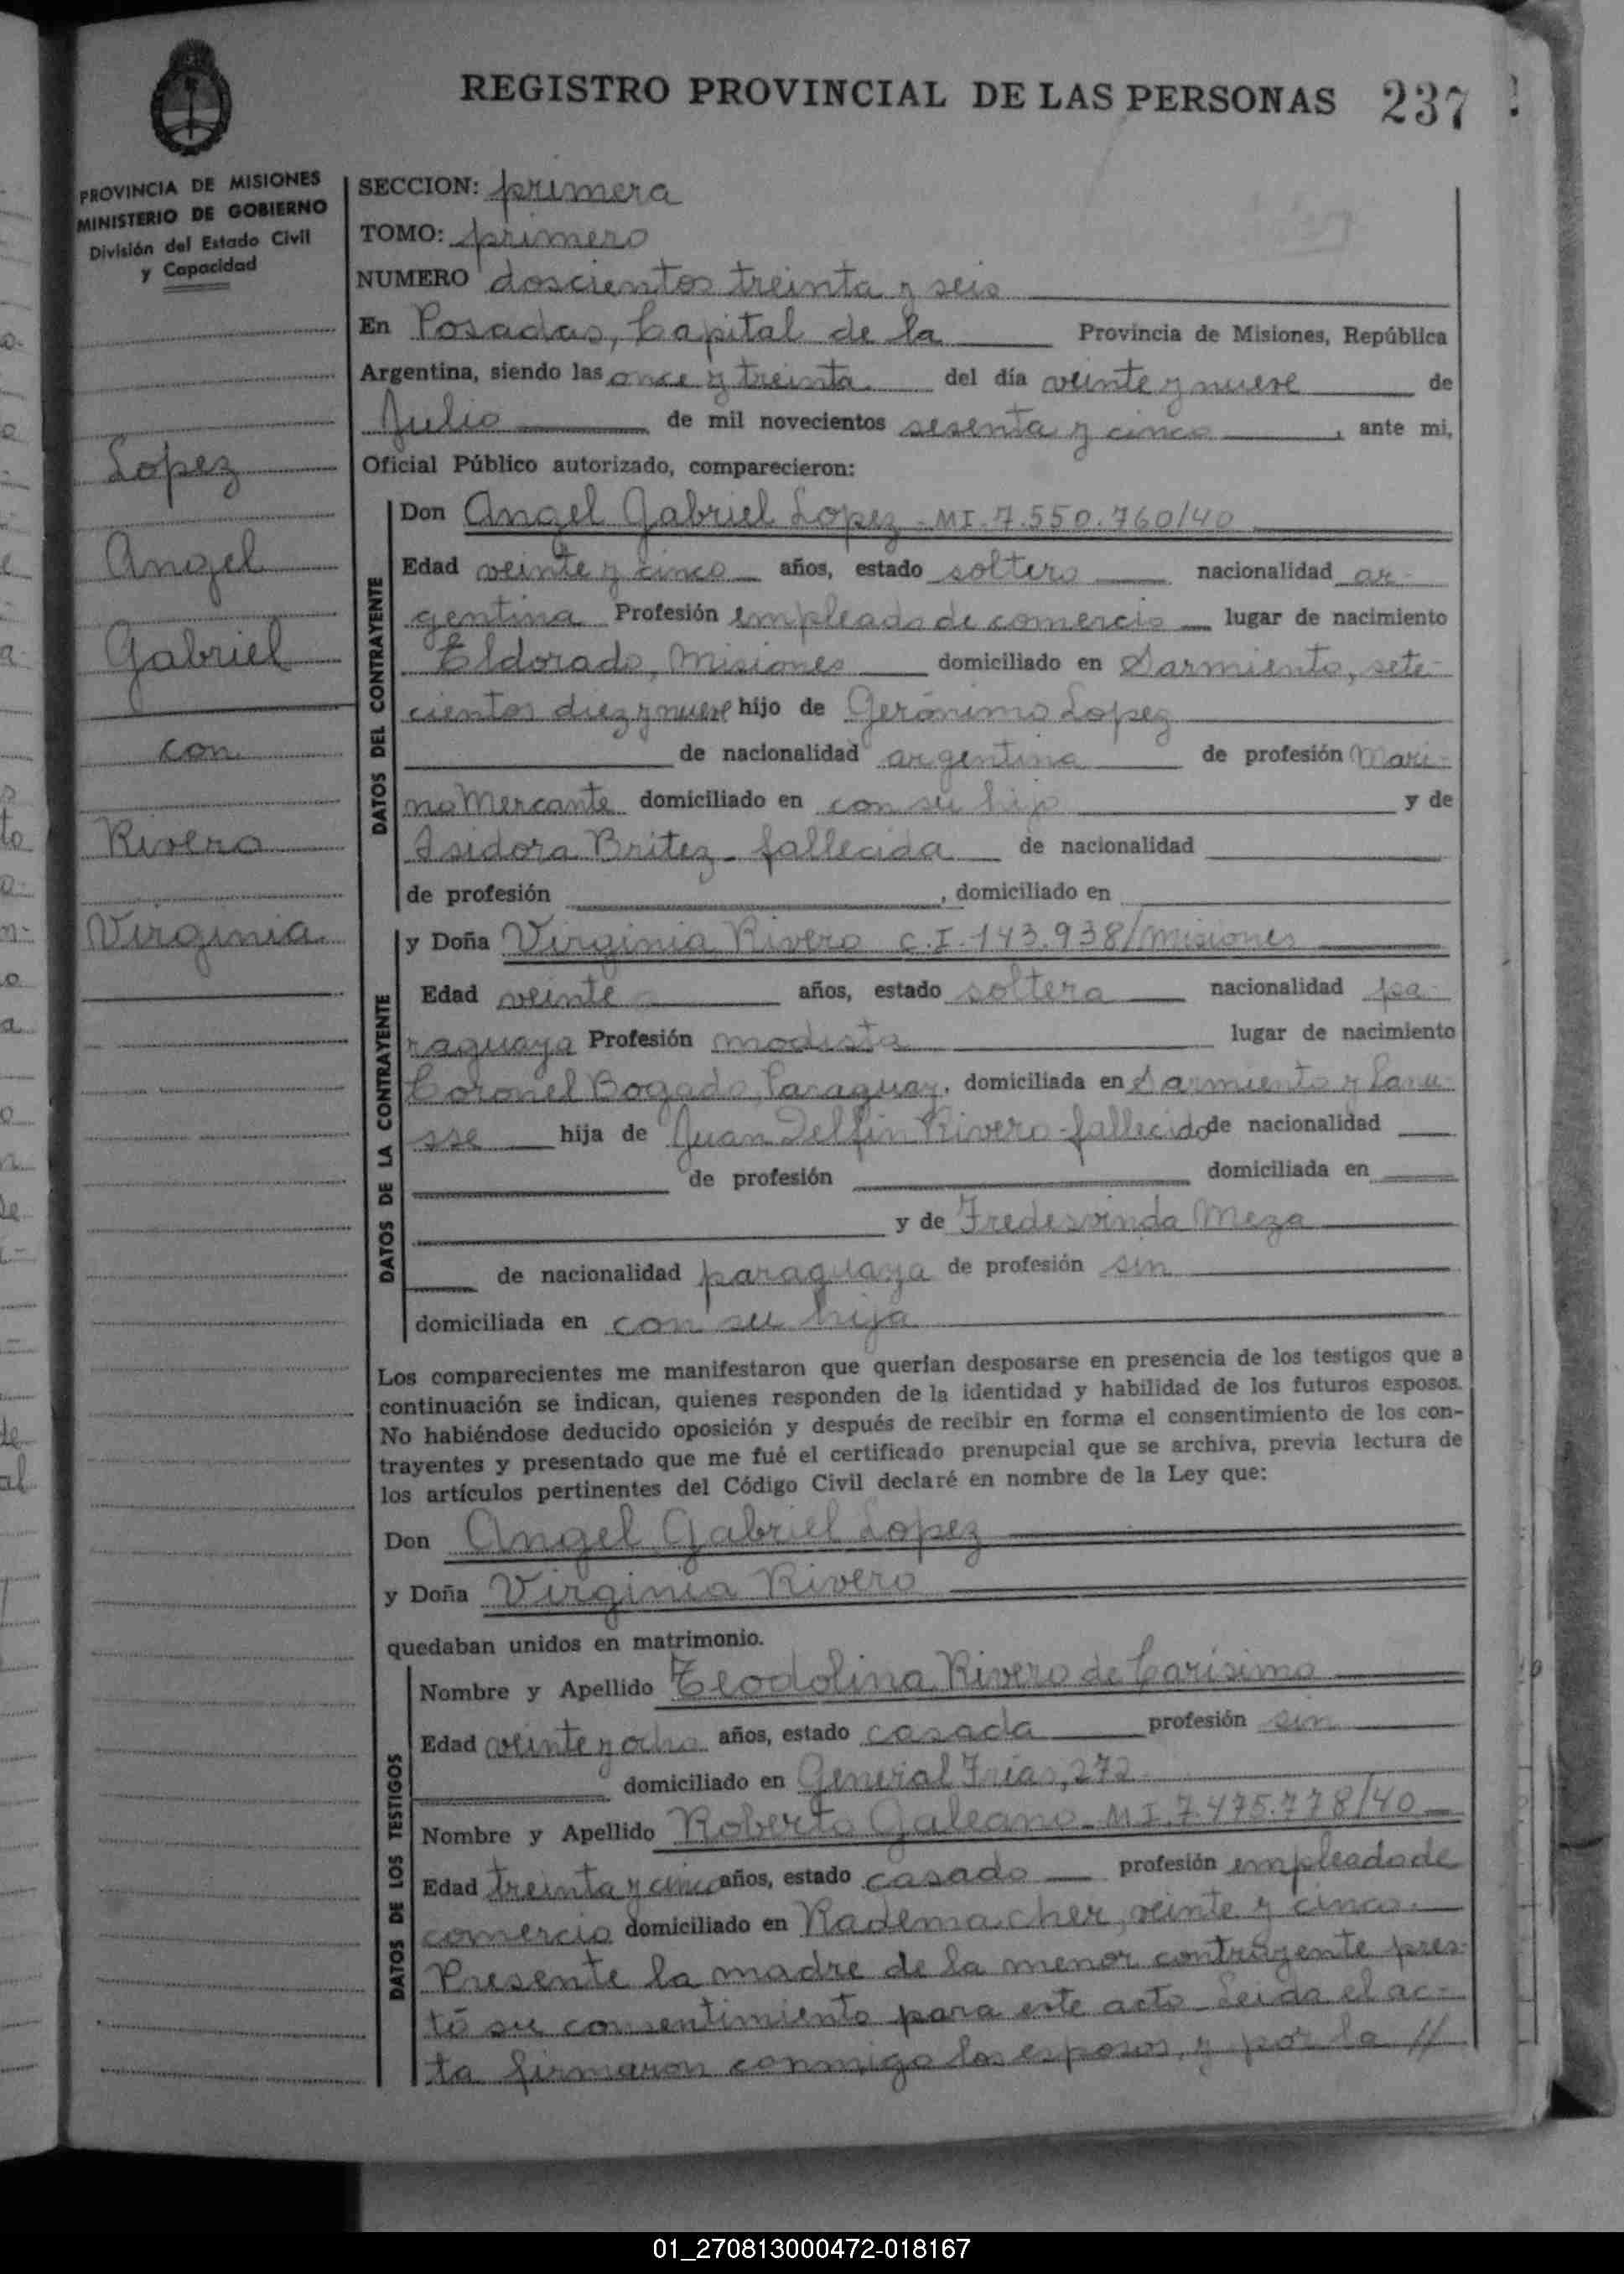 REGISTRO PROVINCIAL DE LAS PERSONAS 237
PROVINCIA DE MISIONES
MINISTERIO DE GOBIERNO
División del Estado Civil
y Capacidad
SECCION: primera
TOMO: primero
NUMERO doscientos treinta y seis
En Posadas, Capital de la Provincia de Misiones, República
Argentina, siendo las once y treinta del día veinte y nueve de
Julio de mil novecientos sesenta y cinco, ante mi,
Oficial Público autorizado, comparecieron:
Lopez
Angel
Gabriel
con
Rivero
Virginia
DATOS DEL CONTRAYENTE
Don Angel Gabriel Lopez - MI. 7.550.760/40
Edad veinte y cinco años, estado soltero nacionalidad ar-
gentina Profesión empleado de comercio lugar de nacimiento
Eldorado, Misiones domiciliado en Sarmiento, sete-
cientos diez y nueve hijo de Gerónimo Lopez
de nacionalidad argentina de profesión Mari-
no Mercante domiciliado en con su hijo y de
Isidora Britez - fallecida de nacionalidad
de profesión , domiciliado en
DATOS DE LA CONTRAYENTE
y Doña Virginia Rivero C.I. 143.938/Misiones
Edad veinte años, estado soltera nacionalidad pa-
raguaya Profesión modista lugar de nacimiento
Coronel Bogado, Paraguay, domiciliada en Sarmiento y Lanu-
sse hija de Juan Delfin Rivero - fallecido de nacionalidad
de profesión domiciliada en
y de Fredesvinda Meza
de nacionalidad paraguaya de profesión sin
domiciliada en con su hija
Los comparecientes me manifestaron que querían desposarse en presencia de los testigos que a
continuación se indican, quienes responden de la identidad y habilidad de los futuros esposos.
No habiéndose deducido oposición y después de recibir en forma el consentimiento de los con-
trayentes y presentado que me fué el certificado prenupcial que se archiva, previa lectura de
los artículos pertinentes del Código Civil declaré en nombre de la Ley que:
Don Angel Gabriel Lopez
y Doña Virginia Rivero
quedaban unidos en matrimonio.
DATOS DE LOS TESTIGOS
Nombre y Apellido Teodolina Rivero de Carisimo
Edad veinte y ocho años, estado casada profesión sin
domiciliado en General Frias, 272
Nombre y Apellido Roberto Galeano - MI. 7.475.778/40
Edad treinta y cinco años, estado casado profesión empleado de
comercio domiciliado en Rademacher, veinte y cinco.
Presente la madre de la menor contrayente pres-
tó su consentimiento para este acto. Leida el ac-
ta firmaron conmigo los esposos, y por la //
01_270813000472-018167